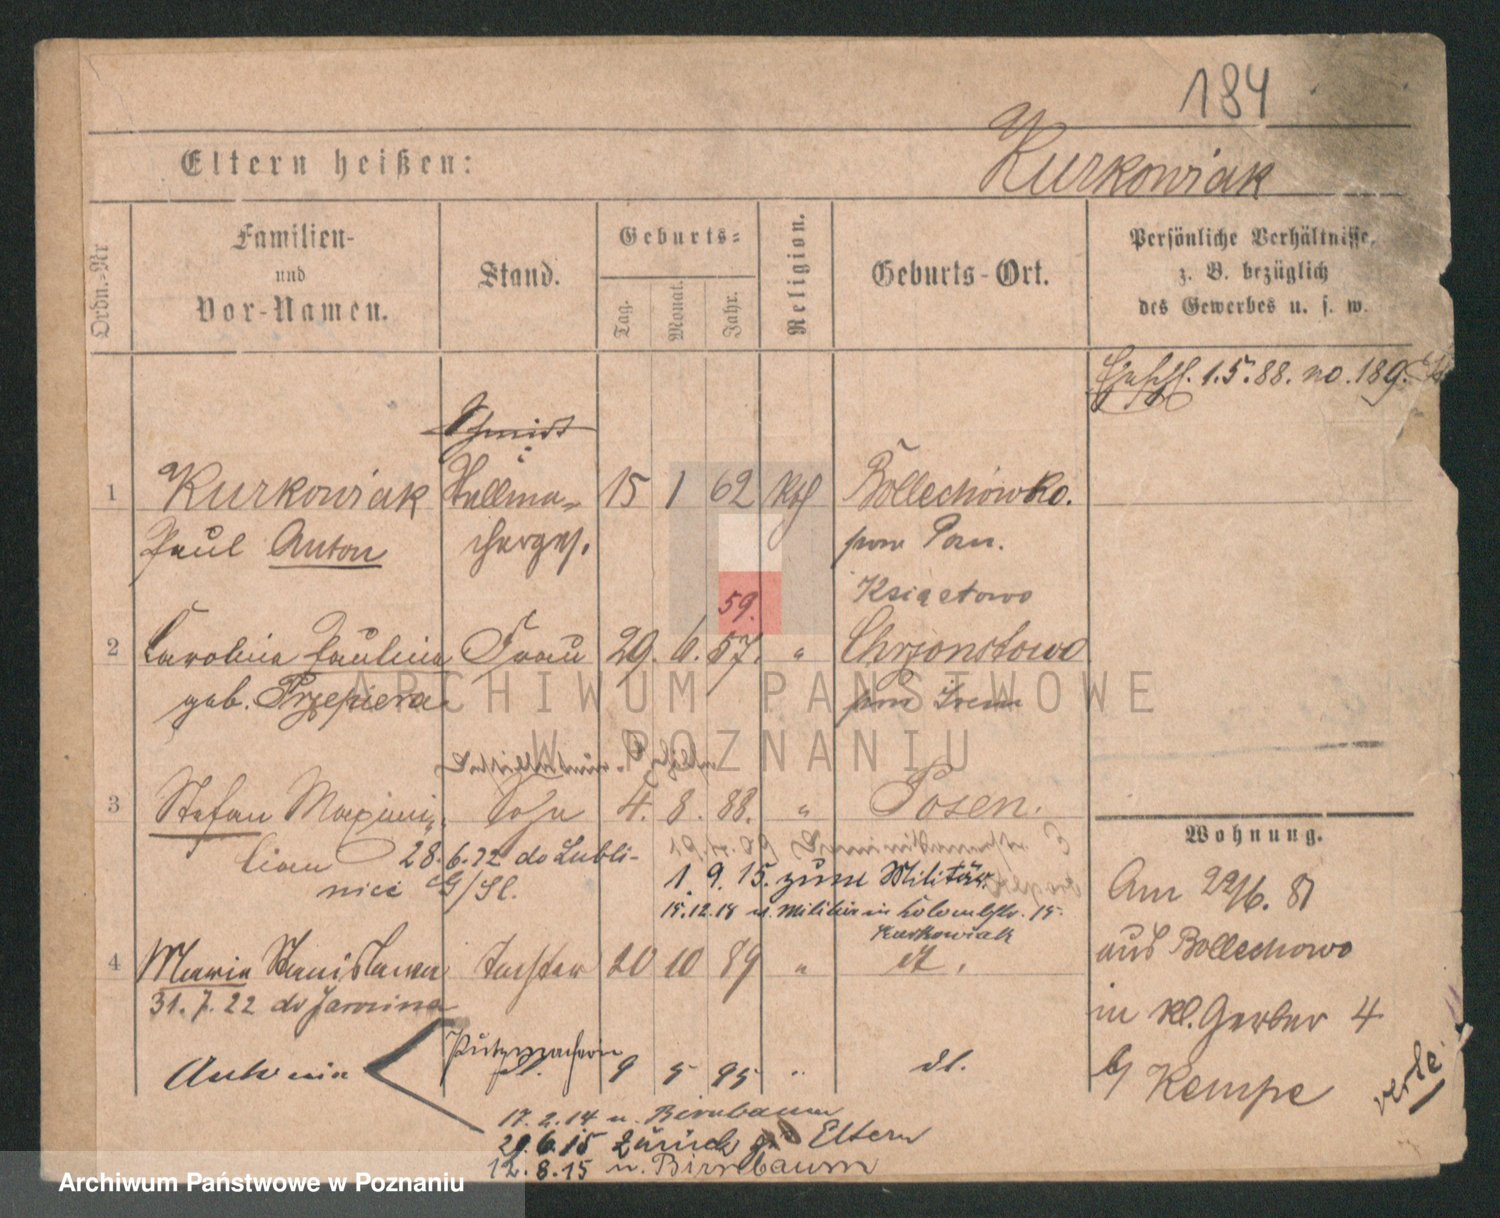 184
Eltern heißen:
Kurkowiak
Ordn.-Nr
Familien-
und
Vor-Namen.
Stand.
Geburts-
Tag.
Monat.
Jahr.
Religion.
Geburts-Ort.
Persönliche Verhältnisse,
z. B. bezüglich
des Gewerbes u. s. w.
1.5.88. no. 189.
Schmidt
1 Kurkowiak Stellma- 15 1 62 Kth Bollechowko.
Paul Anton cherges. Pom.
Ksiąztowo
59.
2 Carolina Paulina Frau 29. 6. 57. " Chrzonstowo
geb. Przepiera
3 Stefan Maximi- Sohn 4. 8. 88. " Posen.
lian 28.6.22 do Lubli-
nici G/Sl.
1. 9. 15. zum Militär.
15.12.18 v. Militär in
Kurkowiak
4 Maria Stanislawa Tochter 20 10 89 " dt.
31. 7. 22 do Jarocina
Putzmacherin
Antonia dt. 9 5 95 " dt.
17. 2. 14 n. Birnbaum
29.6.15 zurück zu Eltern
12.8.15 n. Birnbaum
Wohnung.
Am 22/6. 87
aus Bollechowo
in kl. Gerber 4
b/ Kempe
verte
ARCHIWUM PAŃSTWOWE
W POZNANIU
Archiwum Państwowe w Poznaniu